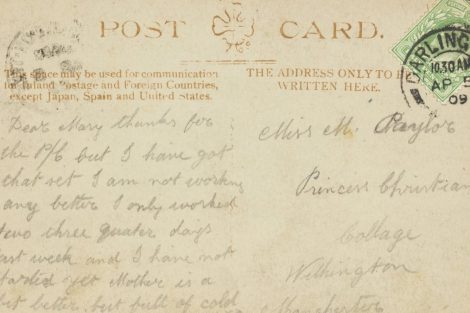 POST CARD.
This space may be used for communication
for Inland Postage and Foreign Countries,
except Japan, Spain and United States.
THE ADDRESS ONLY TO BE
WRITTEN HERE.
DARLING
10.30 AM
AP 5
09
Dear Mary thanks for
the P/C but I have got
that set I am not working
any better I only worked
two three quater days
last week and I have not
started yet Mother is a
bit better but full of cold
Miss M.
Princess Christian
Collage
Withington
Manchester